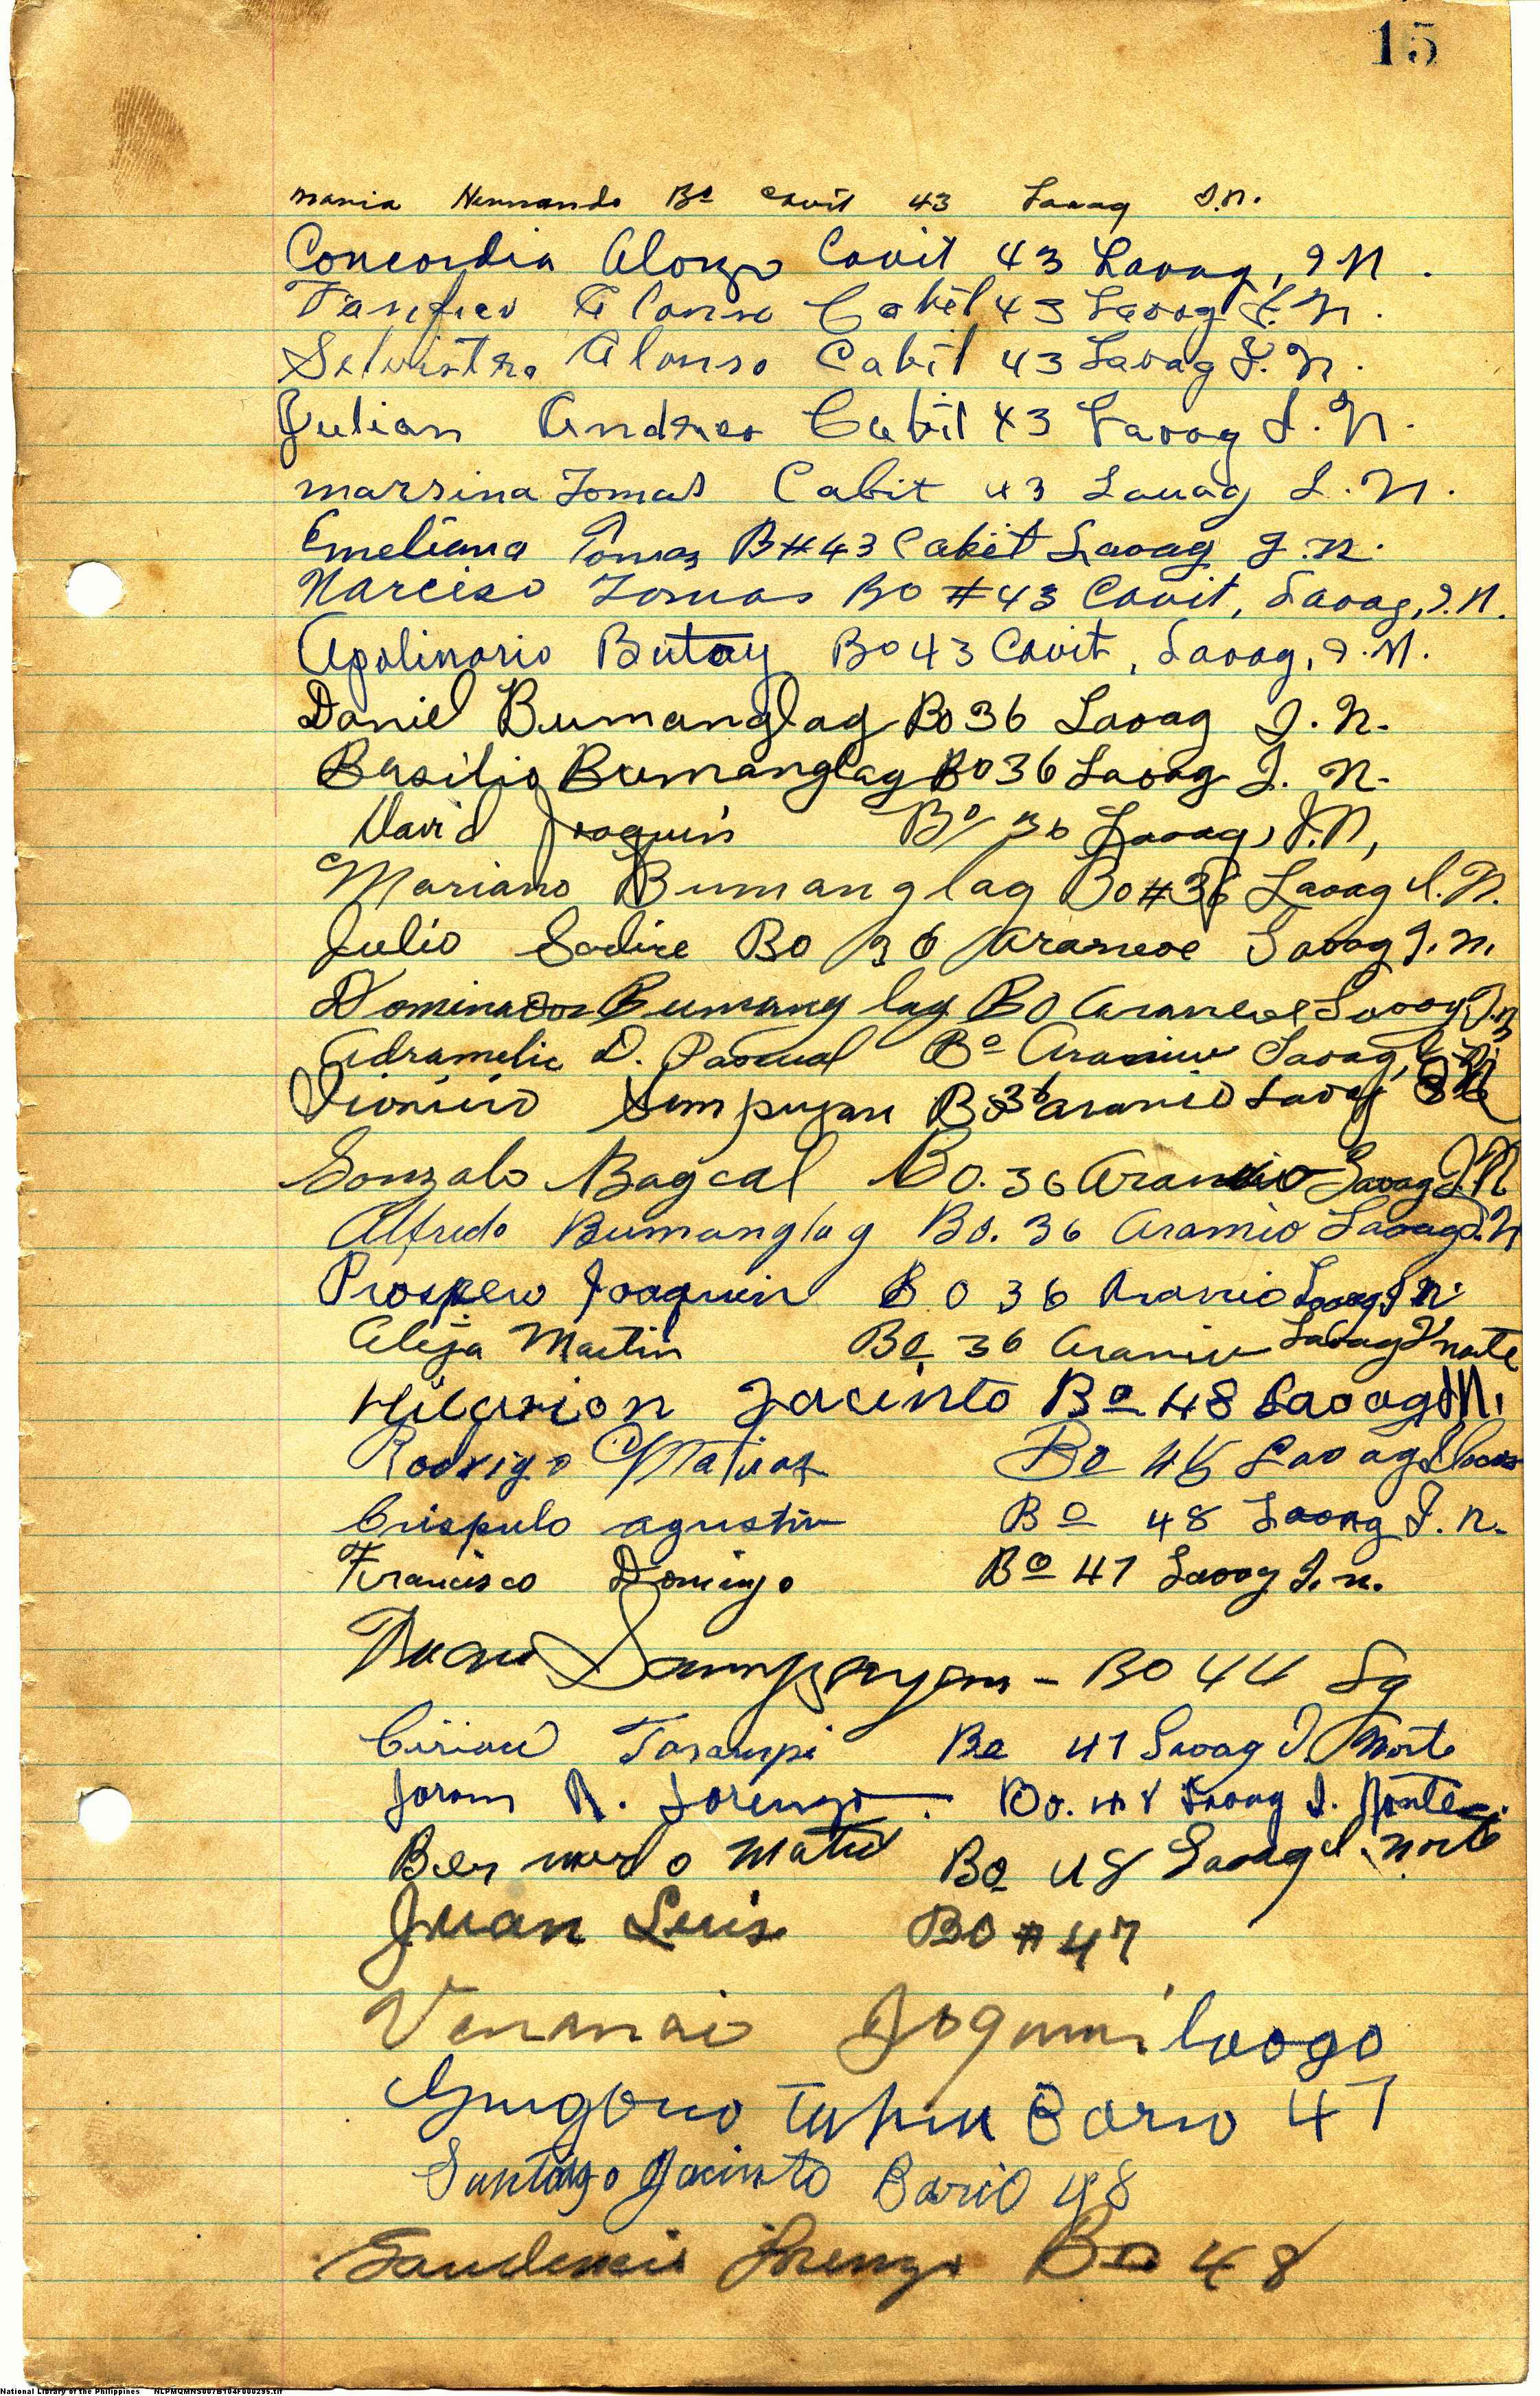 15
Maria Hernando Bo Cavit 43 Laoag I.N.
Concordia Alonzo Cavit 43 Laoag, I N.
Alonso Cabit 43 Laoag I. N.
Selvistra Alonso Cabit 43 Laoag I. N.
Julian Andres Cabit 43 Laoag I. N.
Marsina Tomas Cabit 43 Laoag I. N.
Emeliana Tomas B#43 Cabit Laoag I.N.
Narciso Tomas BO #43 Cavit, Laoag, I.N.
Apolinario Butay Bo 43 Cavit, Laoag, I.N.
Daniel Bumanglag Bo 36 Laoag I. N.
Basilio Bumanglag Bo 36 Laoag I. N.
David Joaquin Bo 36 Laoag, I.N,
Mariano Bumanglag Bo #36 Laoag I.N.
Julio Sadire BO 36 Araneoe Laoag I.N.
Dominador Bumanglag BO Laoag I.N
D. Pascual Bo Laoag, I.N
Sampayan Bo 36 Aranio Laoag
Gonzalo Bagcal Bo. 36 Aranio Laoag I.N
Alfredo Bumanglag Bo. 36 Aramio Laoag I.N
Prospero Joaquin B O 36 Aranio Laoag I N.
Aleja Martin Bo 36 Araniw Laoag I Norte
Hilarion Jacinto Bo 48 Laoag I N.
Rodrigo Matias Bo 48 Laoag Ilocos
Crispulo Agustin Bo 48 Laoag I. N.
Francisco Domingo Bo 47 Laoag I. N.
Sampayan - BO 44 Lg
Tarampi Bo 47 Laoag I. Norte
Joram R. Lorenzo. Bo. 48 Laoag I. Norte.
Bernardo Bo 48 Laoag I. Norte
Juan Luis BO # 47
Barno 47
Santiago Jacinto Bario 48
Gaudencio Lorenzo Bo 48
National Library of the Philippines NLPMQMNS007B104F000295.tif